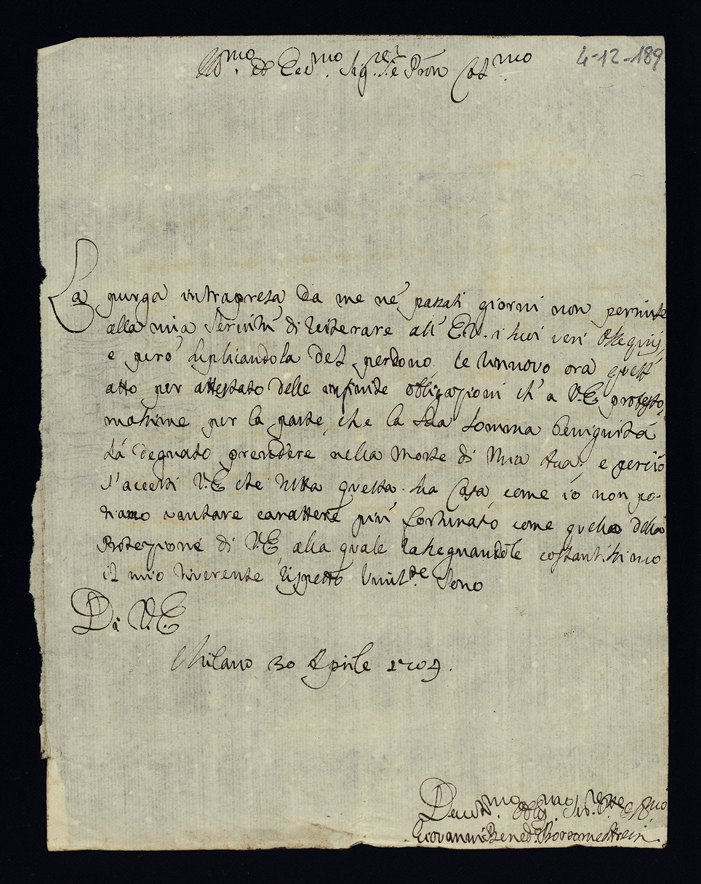 4-12-189
Ill.mo et Ecc.mo Sig.r Sig.r e Pron Col.mo
La purga intrapresa da me ne' passati giorni non permise
alla mia servitù di reiterare all' E.V. i suoi veri ossequij,
e però suplicandola del perdono, le rinnovo ora quest'
atto per attestato delle infinite obligazioni ch' a V.E. professo,
massime per la parte, che la sua somma benignità
s'à degnato prendere nella morte di mia Ava, e perciò
s'accerti V.E. che tutta questa sua Casa come io non po-
tiamo vantare carattere più fortunato come quello della
Protezione di V.E. alla quale rassegnandole costantissimo
il mio riverente rispetto Umil.te sono
Di V.E.
Milano 30 Aprile 1709.
Devot.mo et Obl.mo
Giovanni Bened. Borromeo Aresi